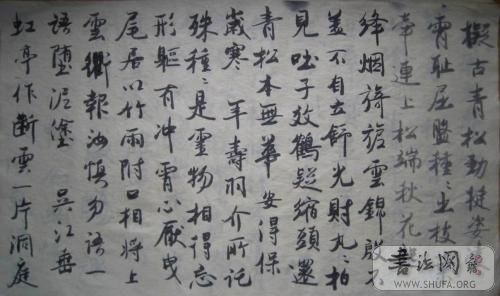 擬古青松勁挺姿
霄恥屈盤種〻出枝
牽連上松端秋花
絳烟旖旎雲錦殷不
羞不自立舒光射丸〻柏
見吐子效鶴疑縮頭還
青松本無華安得保
歲寒 年壽羽介所託
殊種〻是靈物相得忘
形軀有冲霄心厭曳
尾居以竹兩附口相將上
雲衢報汝慎勿語一
語墮泥塗 吳江垂
虹亭作斷雲一片洞庭
WWW.SHUFA.ORG